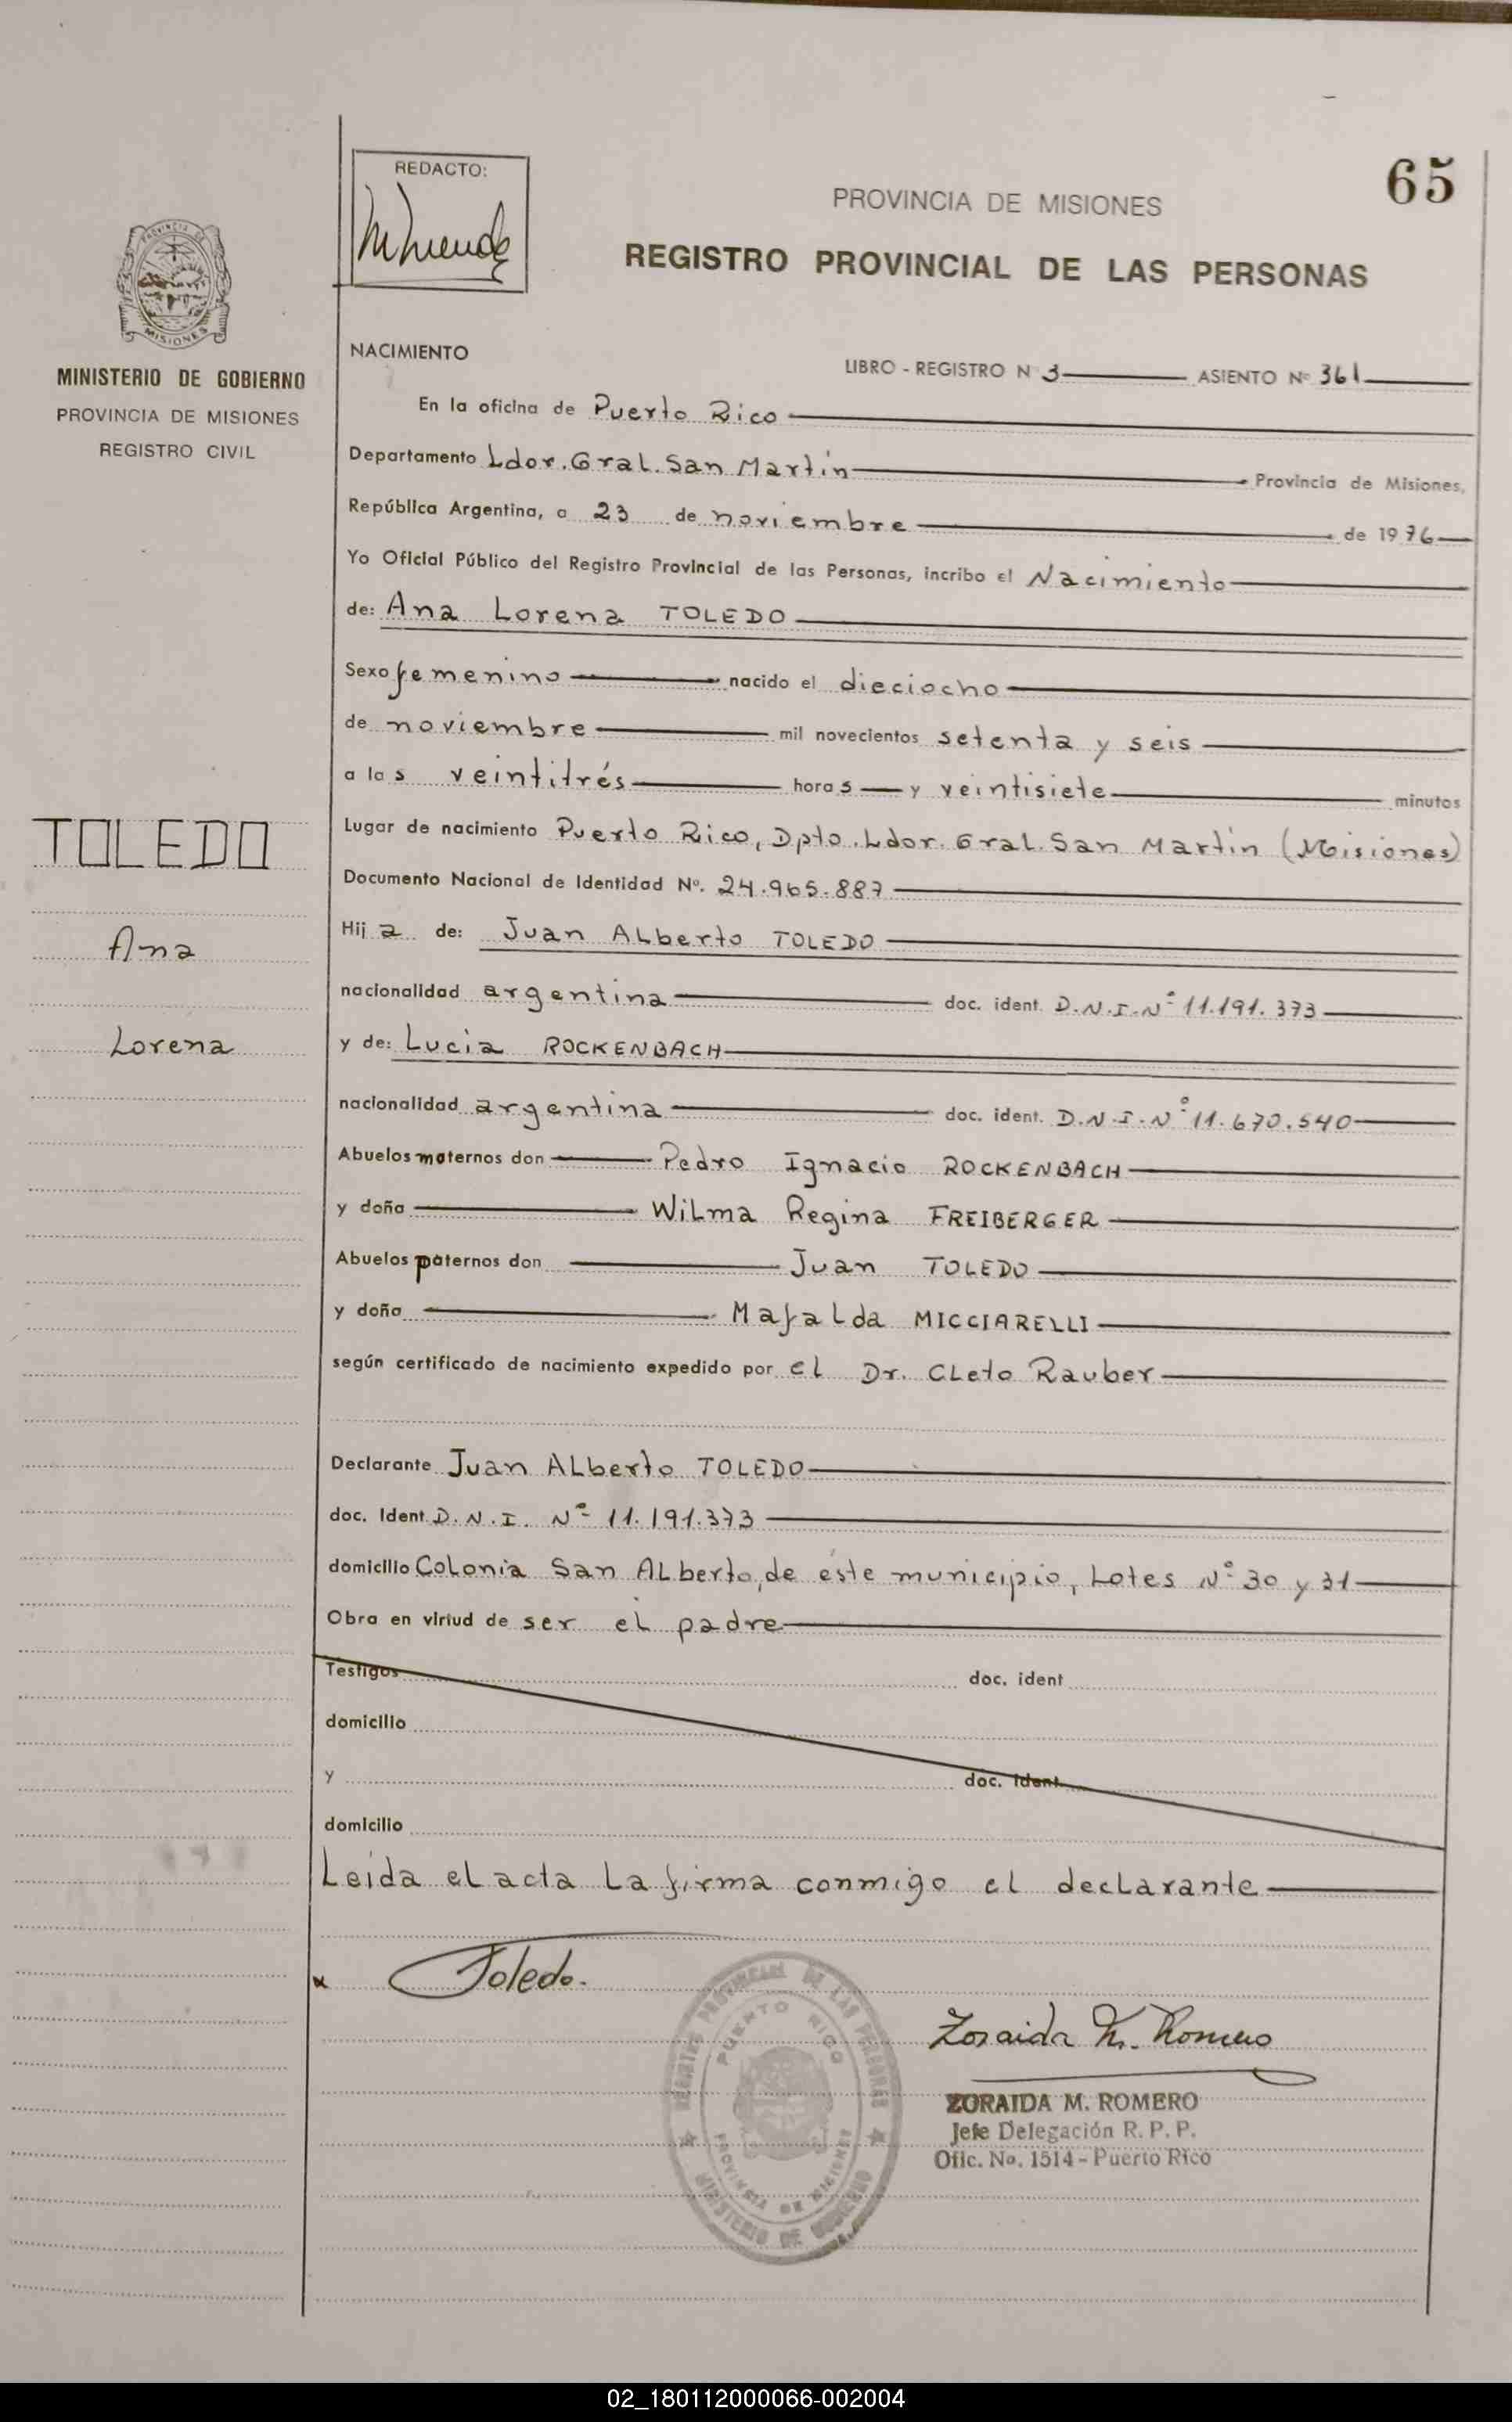 65
REDACTO:
PROVINCIA DE MISIONES
REGISTRO PROVINCIAL DE LAS PERSONAS
MISIONES
MINISTERIO DE GOBIERNO
PROVINCIA DE MISIONES
REGISTRO CIVIL
TOLEDO
Ana
Lorena
NACIMIENTO
LIBRO - REGISTRO N 3 ASIENTO Nº 361
En la oficina de Puerto Rico
Departamento Ldor. Gral. San Martín Provincia de Misiones,
República Argentina, a 23 de noviembre de 1976
Yo Oficial Público del Registro Provincial de las Personas, incribo el Nacimiento
de: Ana Lorena TOLEDO
Sexo femenino nacido el dieciocho
de noviembre mil novecientos setenta y seis
a las veintitrés horas y veintisiete minutos
Lugar de nacimiento Puerto Rico, Dpto. Ldor. Gral. San Martín (Misiones)
Documento Nacional de Identidad Nº. 24.965.887
Hij a de: Juan Alberto TOLEDO
nacionalidad argentina doc. ident. D.N.I. Nº 11.191.373
y de: Lucia ROCKENBACH
nacionalidad argentina doc. ident. D.N.I. Nº 11.670.540
Abuelos maternos don Pedro Ignacio ROCKENBACH
y doña Wilma Regina FREIBERGER
Abuelos paternos don Juan TOLEDO
y doña Mafalda MICCIARELLI
según certificado de nacimiento expedido por el Dr. Cleto Rauber
Declarante Juan Alberto TOLEDO
doc. Ident D.N.I. Nº 11.191.373
domicilio Colonia San Alberto, de éste municipio, Lotes Nº 30 y 31
Obra en virtud de ser el padre
Testigos doc. ident
domicilio
y doc. ident.
domicilio
Leída el acta la firma conmigo el declarante
x Toledo.
REGISTRO PROVINCIAL DE LAS PERSONAS
PUERTO RICO
PROVINCIA DE MISIONES
MINISTERIO DE GOBIERNO
Zoraida M. Romero
ZORAIDA M. ROMERO
Jefe Delegación R. P. P.
Ofic. No. 1514 - Puerto Rico
02_180112000066-002004